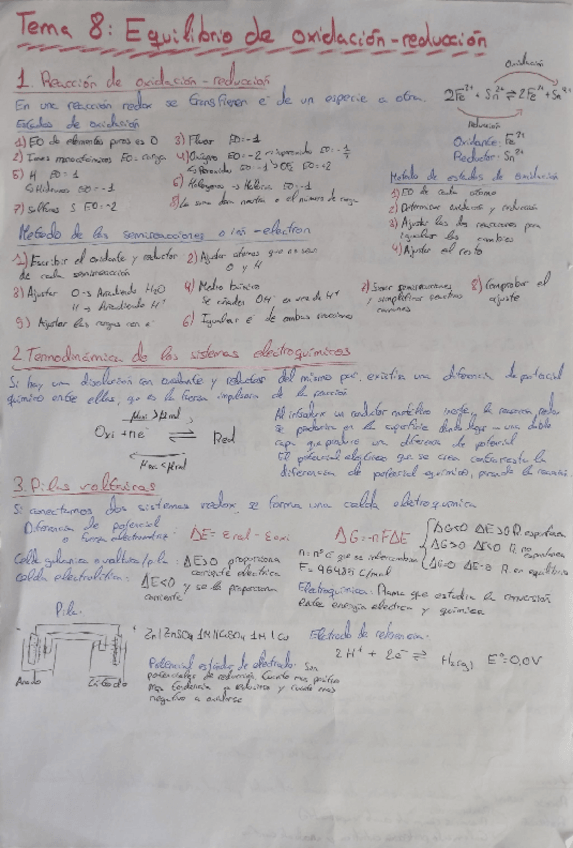 Tema 8: Equilibrio de oxidación-reducción
1. Reacción de oxidación-reducción
Oxidación
En una reacción redox se transfieren e⁻ de una especie a otra.
2Fe³⁺ + Sn²⁺ ⇌ 2Fe²⁺ + Sn⁴⁺
Reducción
Estados de oxidación
1) EO de elementos puros es 0
2) Iones monoatómicos EO = carga
3) Fluor EO = -1
4) Oxígeno EO = -2
↳ Peroxido EO = -1
5) H EO = 1
↳ Hidruros EO = -1
6) Halógenos → Haluros EO = -1
7) Sulfuros S EO = -2
8) La suma da neutra o el número de carga
Oxidante:
Reductor: Sn²⁺
Método de estados de oxidación
1) EO de cada átomo
2) Determinar oxidación y reducción
3) Ajustar las dos reacciones para igualar los cambios
4) Ajustar el resto
Método de las semirreacciones o ión-electrón
1) Escribir el oxidante y reductor de cada semirreacción
2) Ajustar átomos que no sean O y H
3) Ajustar O → Añadiendo H₂O
H → Añadiendo H⁺
4) Medio básico
Se añaden OH⁻ en vez de H⁺
5) Ajustar las cargas con e⁻
6) Igualar e⁻ de ambas reacciones
7) Sumar semirreacciones y simplificar
8) Comprobar el ajuste
2. Termodinámica de los sistemas electroquímicos
Si hay una disolución con oxidante y reductor del mismo par, existirá una diferencia de potencial
químico entre ellos, que es la fuerza impulsora de la reacción
μoxi > μred
Oxi + ne⁻ ⇌ Red
μox < μred
Al introducir un conductor metálico inerte, la reacción redox
se producirá en la superficie dando lugar a una doble
capa que produce una diferencia de potencial
El potencial eléctrico que se crea contrarresta la
diferencia de potencial químico, parando la reacción.
3. Pilas voltaicas
Si conectamos dos sistemas redox, se forma una celda electroquímica
Diferencia de potencial
o fuerza electromotriz: ΔE = εred - εoxi
ΔG = -nFΔE
ΔG<0 ΔE>0 R. espontánea
ΔG>0 ΔE<0 R. no espontánea
ΔG=0 ΔE=0 R. en equilibrio
Celda galvánica o voltaica/pila: ΔE>0 proporciona corriente eléctrica
Celda electrolítica: ΔE<0 y se le proporciona corriente
n = nº e⁻ que se intercambian
F = 96485 C/mol
Electroquímica: Rama que estudia la conversión
entre energía eléctrica y química
Pila
Zn | ZnSO₄ 1M || CuSO₄ 1M | Cu
Ánodo
Cátodo
Electrodo de referencia:
2H⁺ + 2e⁻ ⇌ H₂(g) E°=0,0V
Potencial estándar de electrodo: Son
potenciales de reducción. Cuanto más positivo
más tendencia a reducirse y cuanto más
negativo a oxidarse